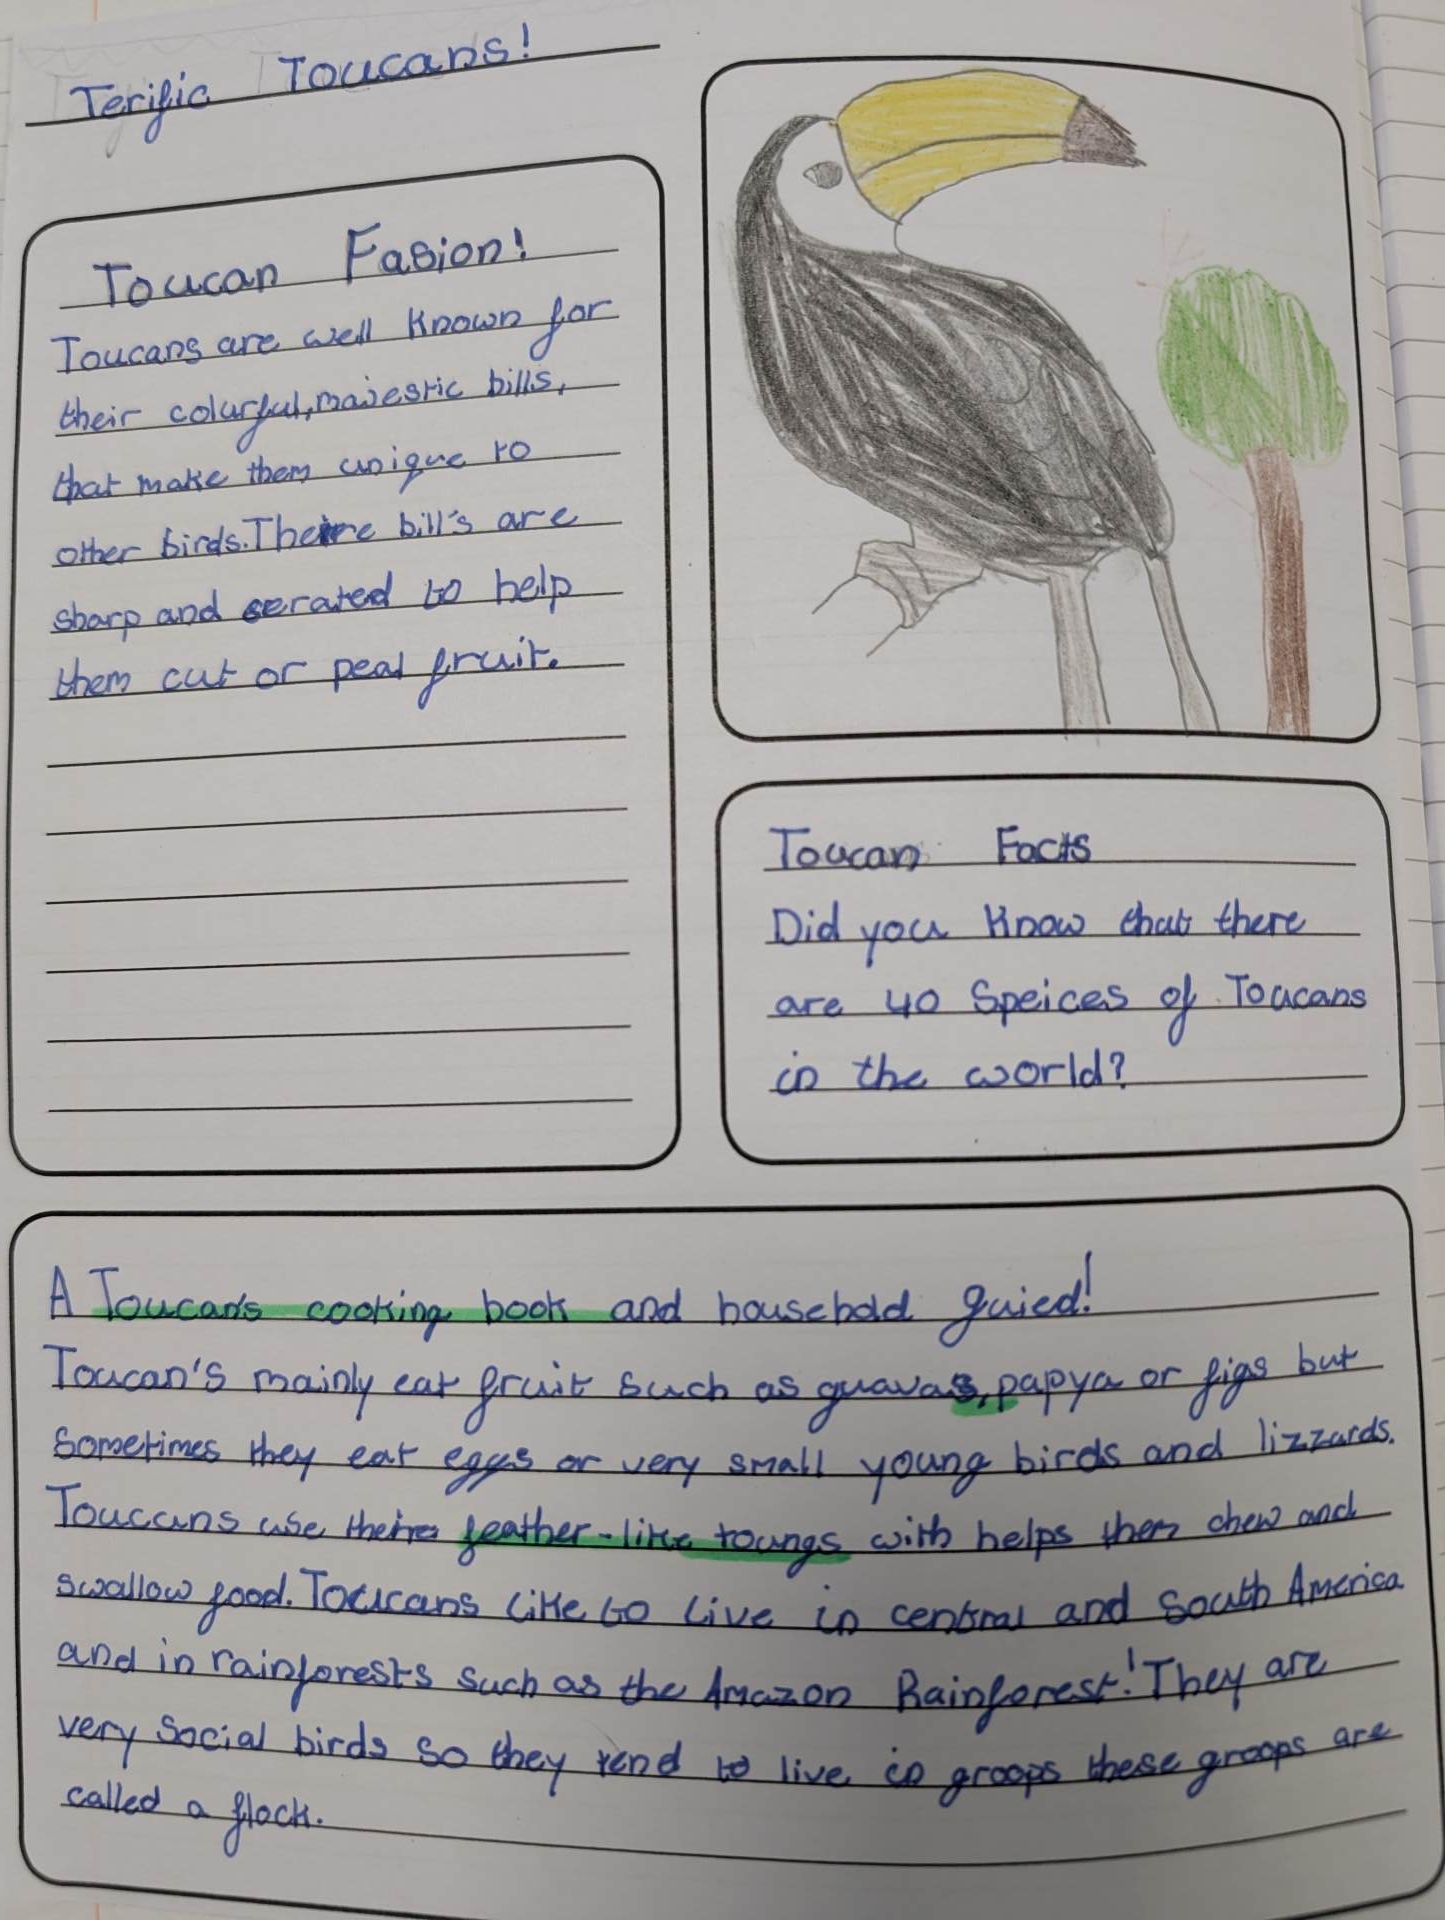 Terific Toucans!
Toucan Fasion!
Toucans are well known for
their colurful, majestic bills,
that make them unique to
other birds. Theire bill's are
sharp and serated to help
them cut or peal fruit.
Toucan Facts
Did you know that there
are 40 Speices of Toucans
in the world?
A Toucan's cooking book and household guied!
Toucan's mainly eat fruit such as guavas, papya or figs but
sometimes they eat eggs or very small young birds and lizzards.
Toucans use their feather-like toungs with helps them chew and
swallow food. Toucans like to live in central and South America
and in rainforests such as the Amazon Rainforest! They are
very social birds so they tend to live in groops these groops are
called a flock.